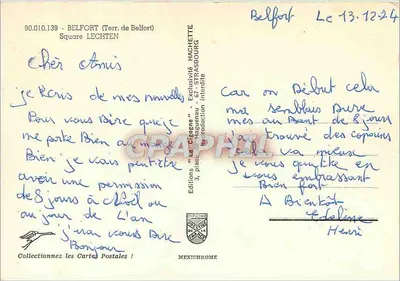 90.010.139 - BELFORT (Terr. de Belfort)
Square LECHTEN
Belfort Le 13.12.24
Chèr Amis
je Ecris de mes nouvelles
Pour vous Dire que je
me porte Bien au moins
Bien je vous peut-être
avoir une permission
de 8 jours à Noël ou
au jour de L'an
j'irai vous Dire
Bonjour
Editions "La Cigogne" - Exclusivité HACHETTE
place Haguenau - 67 - STRASBOURG
Reproduction interdite
car au Début cela
ma semblais Dure
mes au Bout de 8 jours
j'ai trouvé des copains
cela va mieux
je vous quitte en
vous embrassant
Bien fort
A Bientôt
Edeline
Henri
GRAPHIL
Collectionnez les Cartes Postales !
MEXICHROME